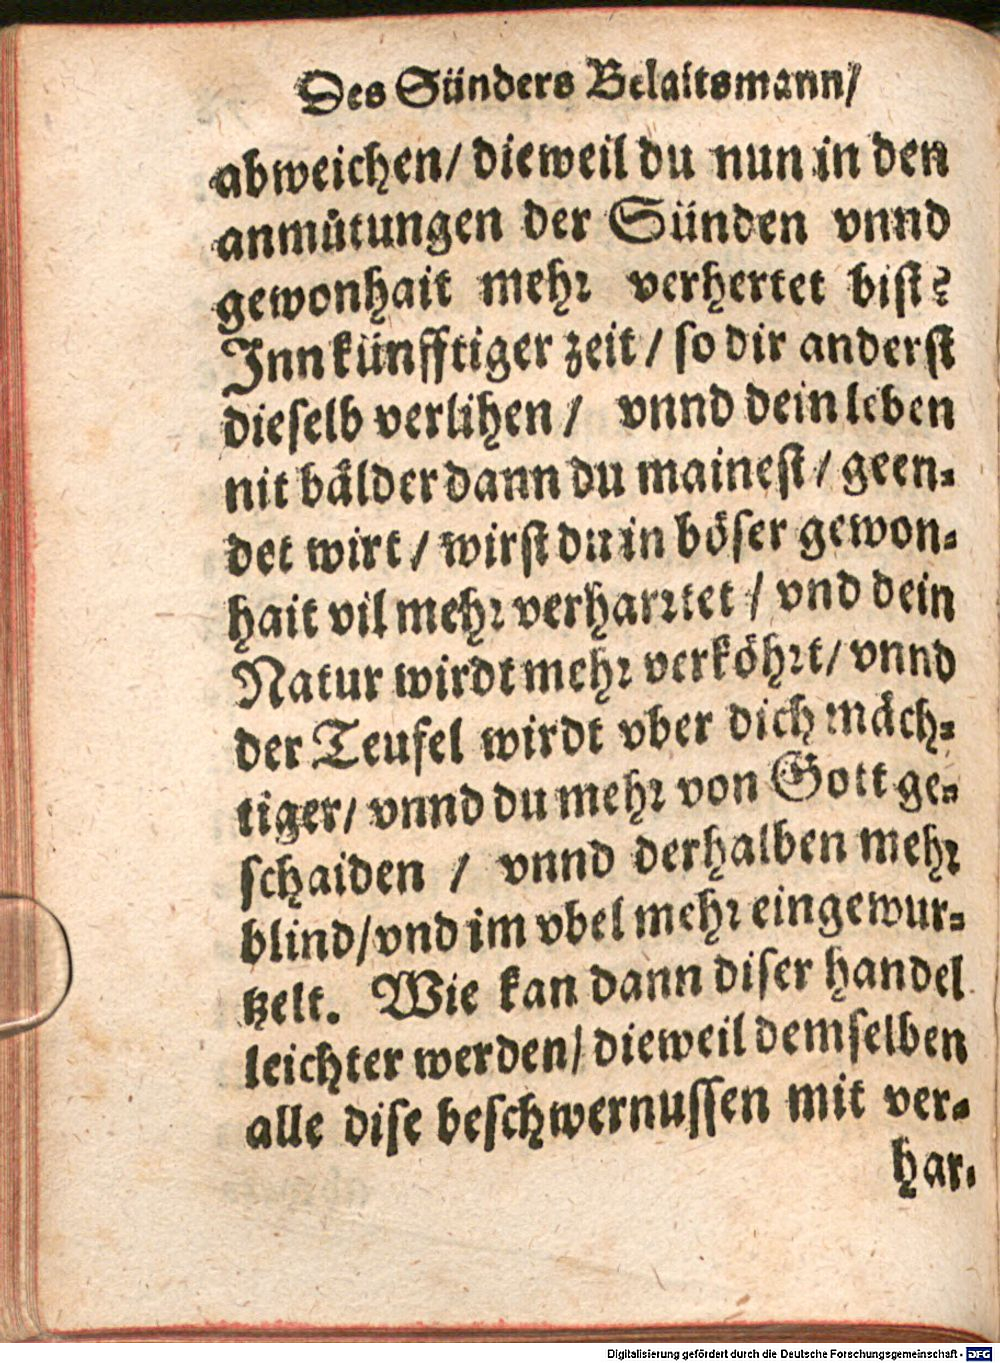 Des Sünders Belaitsmann/
abweichen/ dieweil du nun in den
anmůtungen der Sünden vnnd
gewonhait mehr verhertet bist?
Inn künfftiger zeit / so dir anderst
dieselb verlihen / vnnd dein leben
nit bälder dann du mainest / geen-
det wirt / wirst du in böser gewon-
hait vil mehr verharrtet / vnd dein
Natur wirdt mehr verköhrt/ vnnd
der Teufel wirdt vber dich mäch-
tiger/ vnnd du mehr von Gott ge-
schaiden / vnnd derhalben mehr
blind/vnd im vbel mehr eingewur-
tzelt. Wie kan dann diser handel
leichter werden/ dieweil demselben
alle dise beschwernussen mit ver-
har-
Digitalisierung gefördert durch die Deutsche Forschungsgemeinschaft - DFG